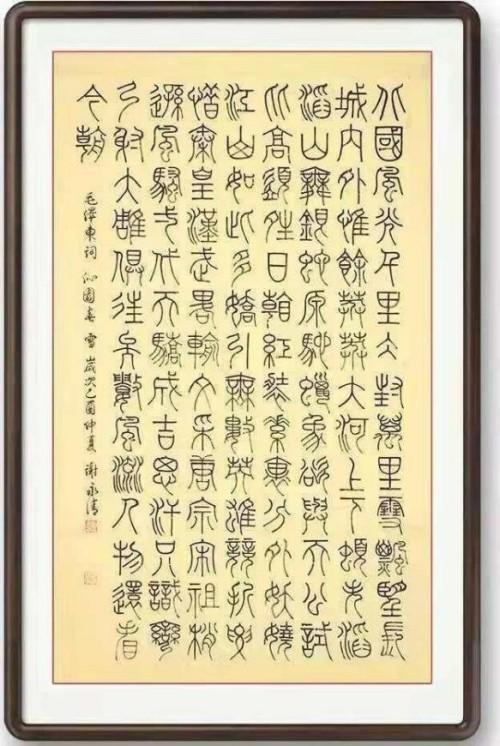 北國風光千里冰封萬里雪飄望長
城內外惟餘莽莽大河上下頓失滔
滔山舞銀蛇原馳蠟象欲與天公試
比高須晴日看紅裝素裹分外妖嬈
江山如此多嬌引無數英雄競折腰
惜秦皇漢武略輸文采唐宗宋祖稍
遜風騷一代天驕成吉思汗只識彎
弓射大雕俱往矣數風流人物還看
今朝
毛澤東詞 沁園春 雪 歲次乙酉仲夏 謝永清